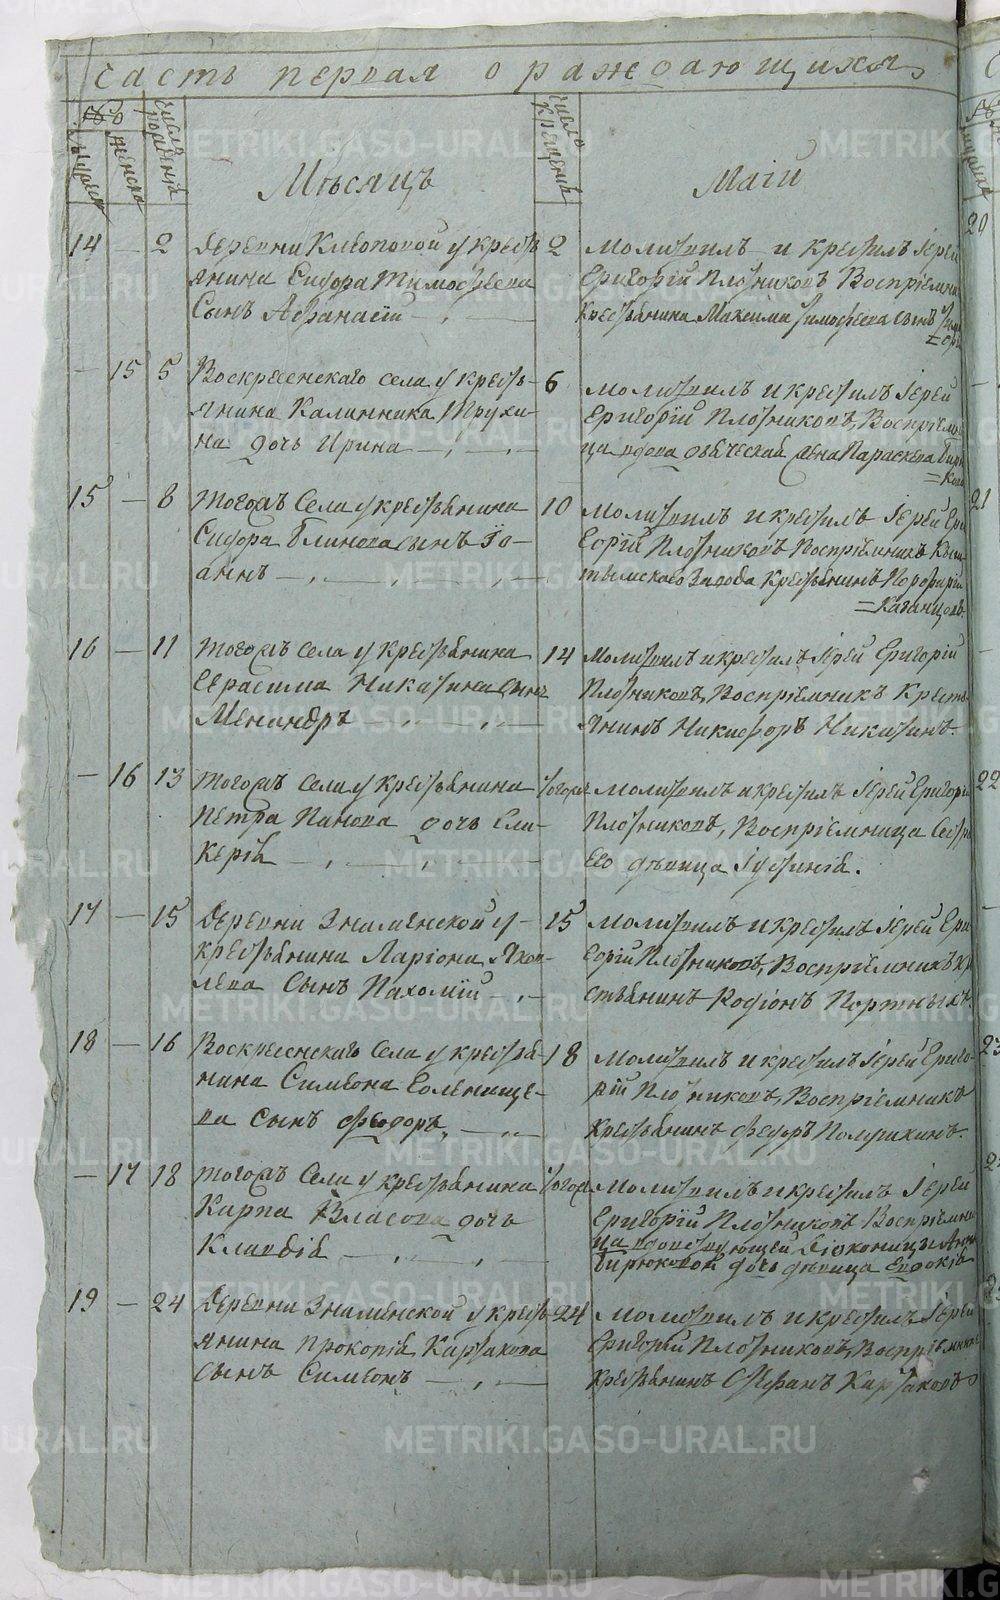 Часть первая о раждающихся
№
мужеска
женска
число рождения
число крещения
Мѣсяцъ
Маій
14 — 2 Деревни Клеопиной у кресть-
янина Сидора Тимофѣева
Сынъ Афанасій
2 Молитвилъ и крестилъ Іерей
Григорій Плотниковъ Воспріемни
Крестьянина Максима Тимофѣева сынъ
— 15 5 Воскресенскаго села у кресть-
янина Калинника Трухи-
на дочь Ирина
6 Молитвилъ и крестилъ Іерей
Григорій Плотниковъ, Воспріемни
ца вдова Параскева
15 — 8 Тогожъ Села у крестьянина
Сидора Блинова сынъ Іо-
аннъ
10 Молитвилъ и крестилъ Іерей Гри
горій Плотниковъ Воспріемникъ Кыш
тымскаго Завода Крестьянинъ Порфирій
= Казанцовъ
16 — 11 Тогожъ села у Крестьянина
Герасима Никитина сынъ
Менандръ
14 Молитвилъ и крестилъ Іерей Григорій
Плотниковъ, Воспріемникъ Кресть
янинъ Никифоръ Никитинъ.
— 16 13 Тогожъ села у Крестьянина
Петра Панова дочь Гли-
керія
тогожъ Молитвилъ и крестилъ Іерей Григорій
Плотниковъ, Воспріемница Сестра
его дѣвица Іустинія.
17 — 15 Деревни Знаменской у
крестьянина Ларіона Яков-
лева Сынъ Пахомій
15 Молитвилъ и крестилъ Іерей Гри
горій Плотниковъ, Воспріемникъ кре
стьянинъ Родіонъ Портныхъ
18 — 16 Воскресенскаго Села у крестья-
нина Симеона Голенище-
ва сынъ Феодоръ
18 Молитвилъ и крестилъ Іерей Григо-
рій Плотниковъ, Воспріемникъ
крестьянинъ Федоръ
— 17 18 Тогожъ Села у крестьянина
Карпа Власова дочь
Клавдія
тогожъ Молитвилъ и крестилъ Іерей
Григорій Плотниковъ Воспріемни
ца вдовствующей Діаконицы Анны
Бирюковой дочь дѣвица Евдокія
19 — 24 Деревни Знаменской у кресть-
янина Прокопія Картакова
сынъ Симеонъ
24 Молитвилъ и крестилъ Іерей
Григорій Плотниковъ, Воспріемникъ
крестьянинъ Стефанъ Картаковъ
20
21
22
23
METRIKI.GASO-URAL.RU